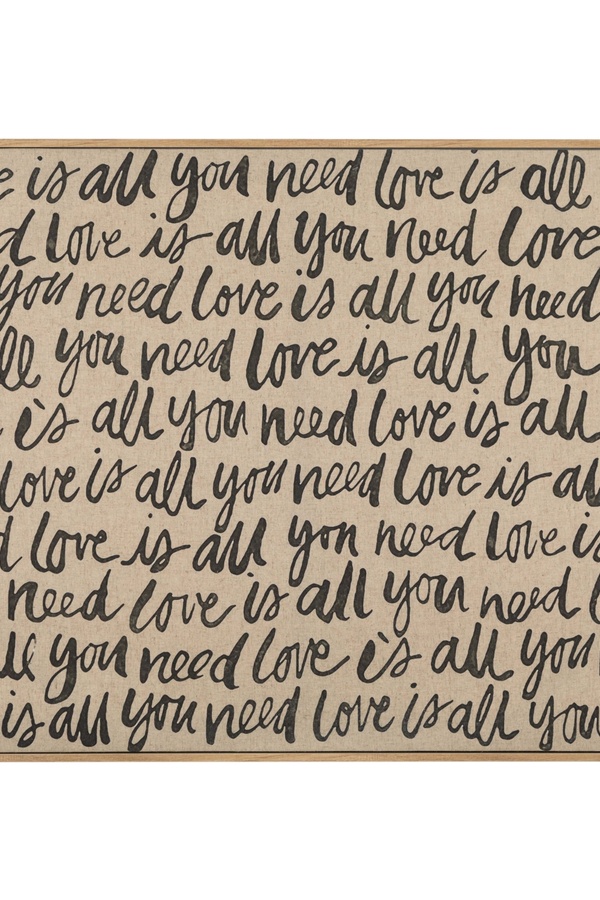 e is all you need love is all
d love is all you need love
you need love is all you need
ll you need love is all you
is all you need love is all
love is all you need love is al
d love is all you need love is
need love is all you need l
all you need love is all you
is all you need love is all you